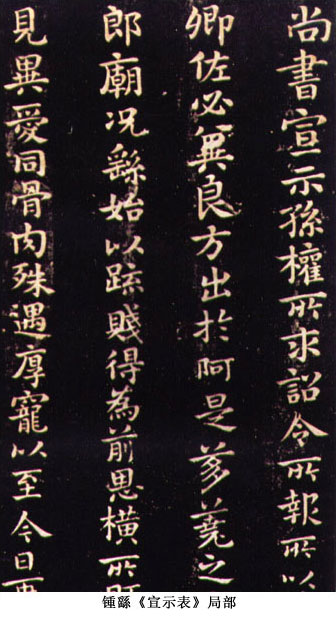 尚書宣示孫權所求詔令所報所以
卿佐必冀良方出於阿是芻蕘之
郎廟况繇始以疏賤得為前恩橫所
見異愛同骨肉殊遇厚寵以至今日再
锺繇《宣示表》局部